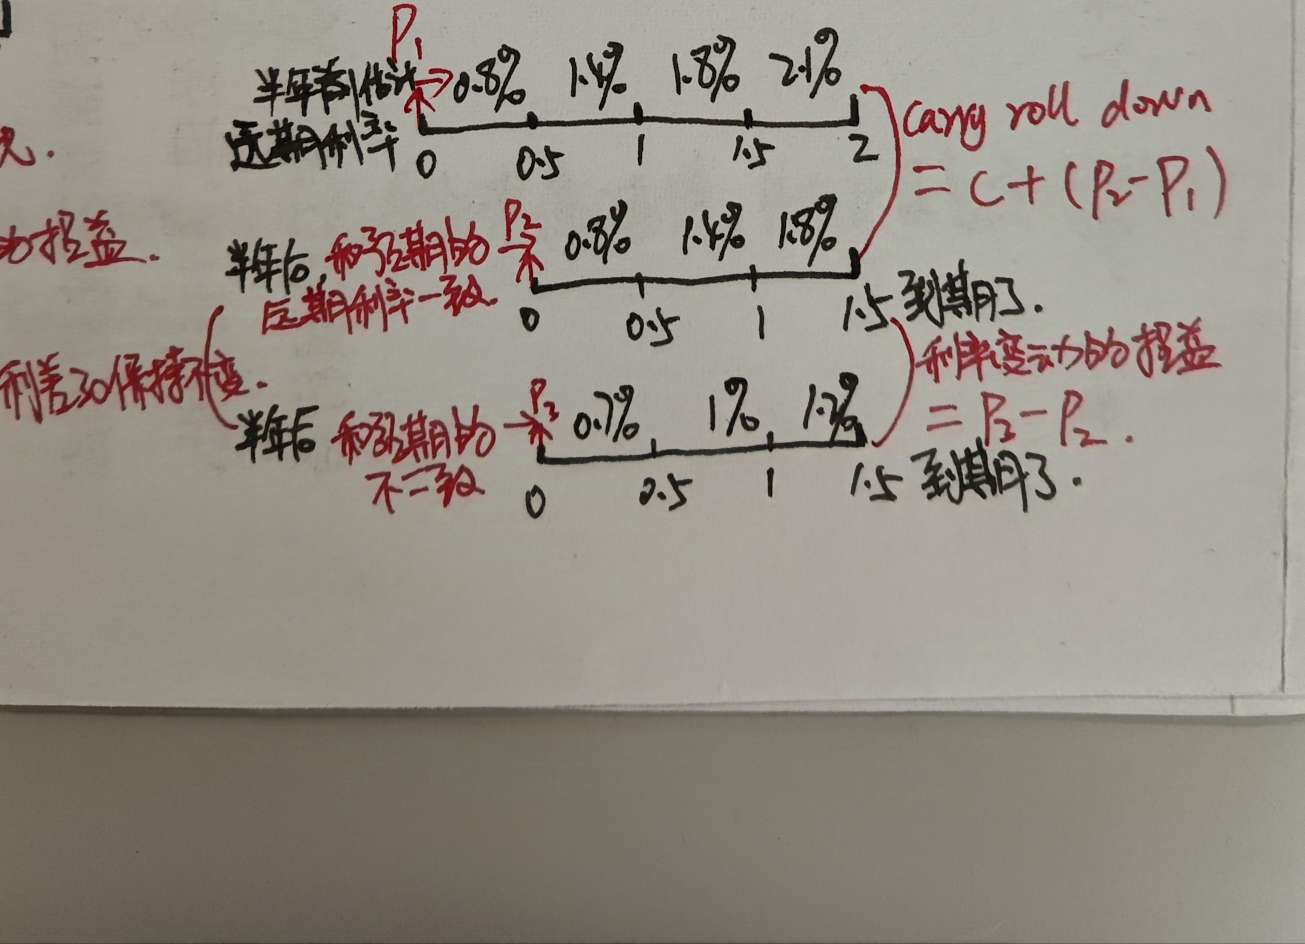 P₁
半年前估计 0.8% 1.4% 1.8% 2.1%
远期利率 0 0.5 1 1.5 2
carry roll down
= C + (P₂-P₁)
况.
的损益.
半年后, 和预期的 P₂ 0.8% 1.4% 1.8%
远期利率一致 0 0.5 1 1.5 到期了.
利差30保持不变.
半年后 和预期的 P₃ 0.7% 1% 1.2%
不一致 0 0.5 1 1.5 到期了.
利率变动的损益
= P₃-P₂.